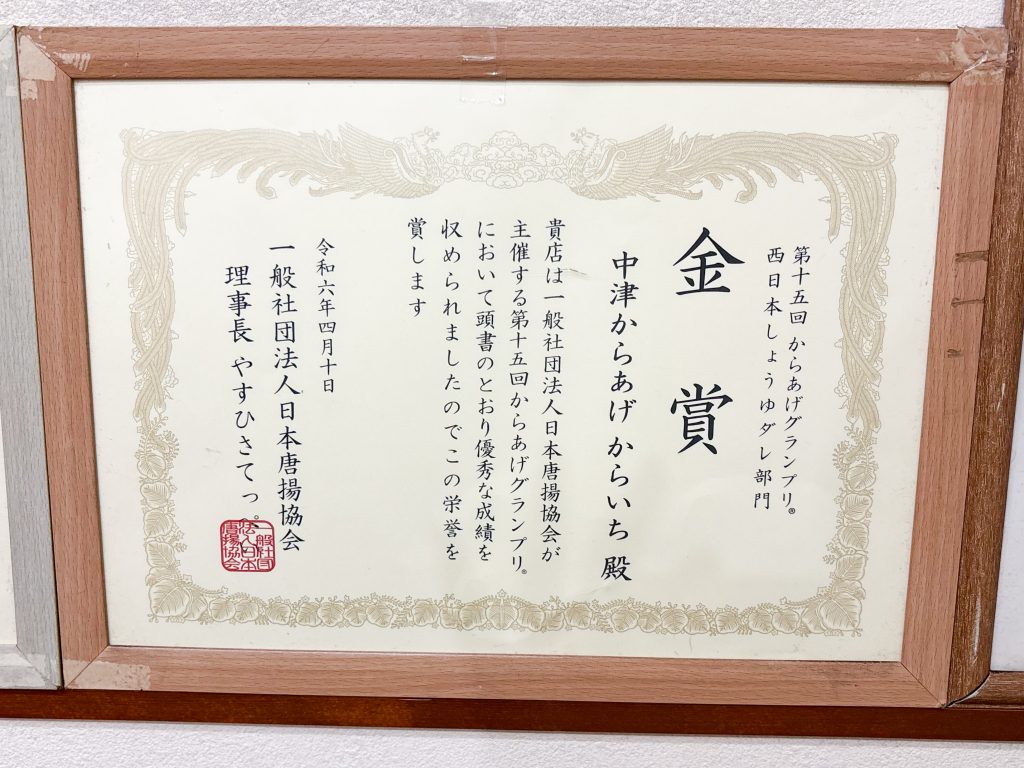 第十五回 からあげグランプリ®
西日本しょうゆダレ部門
金賞
中津からあげ からいち 殿
貴店は一般社団法人日本唐揚協会が
主催する第十五回からあげグランプリ®
において頭書のとおり優秀な成績を
収められましたのでこの栄誉を
賞します
令和六年四月十日
一般社団法人日本唐揚協会
理事長 やすひさてっ。
一般社団
法人日本
唐揚協会